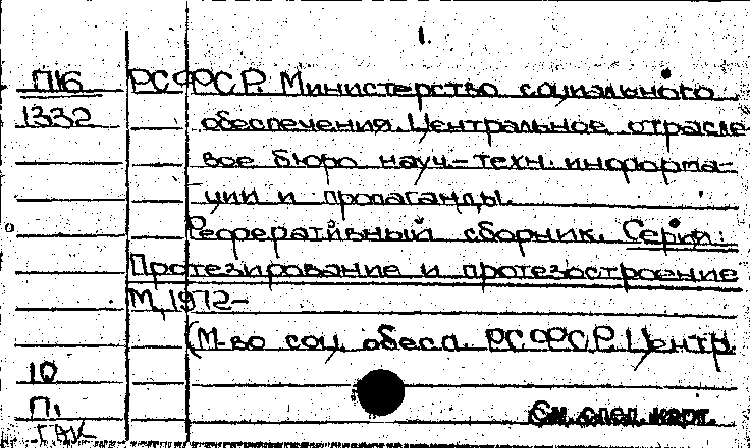 1.
П16 РСФСР. Министерство социального
1332 обеспечения. Центральное отрасле
вое бюро науч-техн. информа-
ции и пропаганды.
Реферативный сборник. Серия:
Протезирование и протезостроение
М, 1972-
(М-во соц. обесп. РСФСР. Центр.
10
П.
ГАК
См. след. карт.